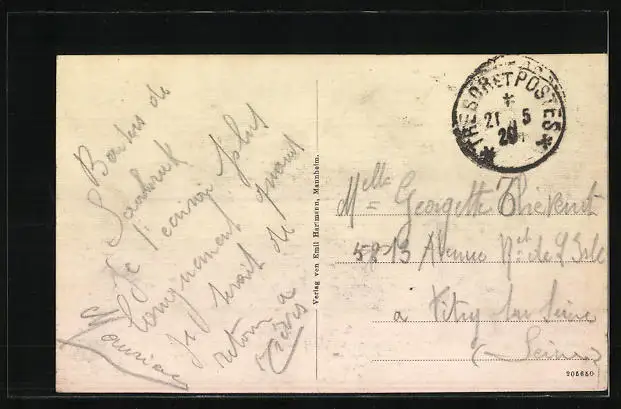 Baisers de
Sarrebruck
Je t'écrirai plus
longuement quand
je serait de
retour a
Trèves
Maurice
Verlag von Emil Hartmann, Mannheim.
TRESOR ET POSTES
21 5
20
Melle Georgette
58 Avenue de
a Vitry sur Seine
(Seine)
205650